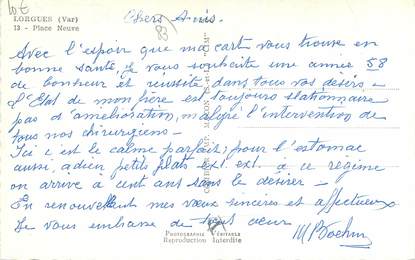 10€
LORGUES (Var)
13 - Place Neuve
Chers Amis.
83
Avec l'espoir que ma cart vous trouve en
bonne santé, je vous souhaite une année 58
de bonheur et réussite dans tous vos désirs -
l'Etat de mon père est toujours stationnaire
pas d'amélioration, malgré l'intervention de
tous nos chirurgiens -
Ici c'est le calme parfait, pour l'estomac
aussi, adieu petits plats ext. ext. à ce régime
on arrive à cent ans sans le désirer -
En renouvellant mes vœux sincères et affectueux
Je vous embrasse de tout cœur
PHOTOGRAPHIE VÉRITABLE
Reproduction Interdite